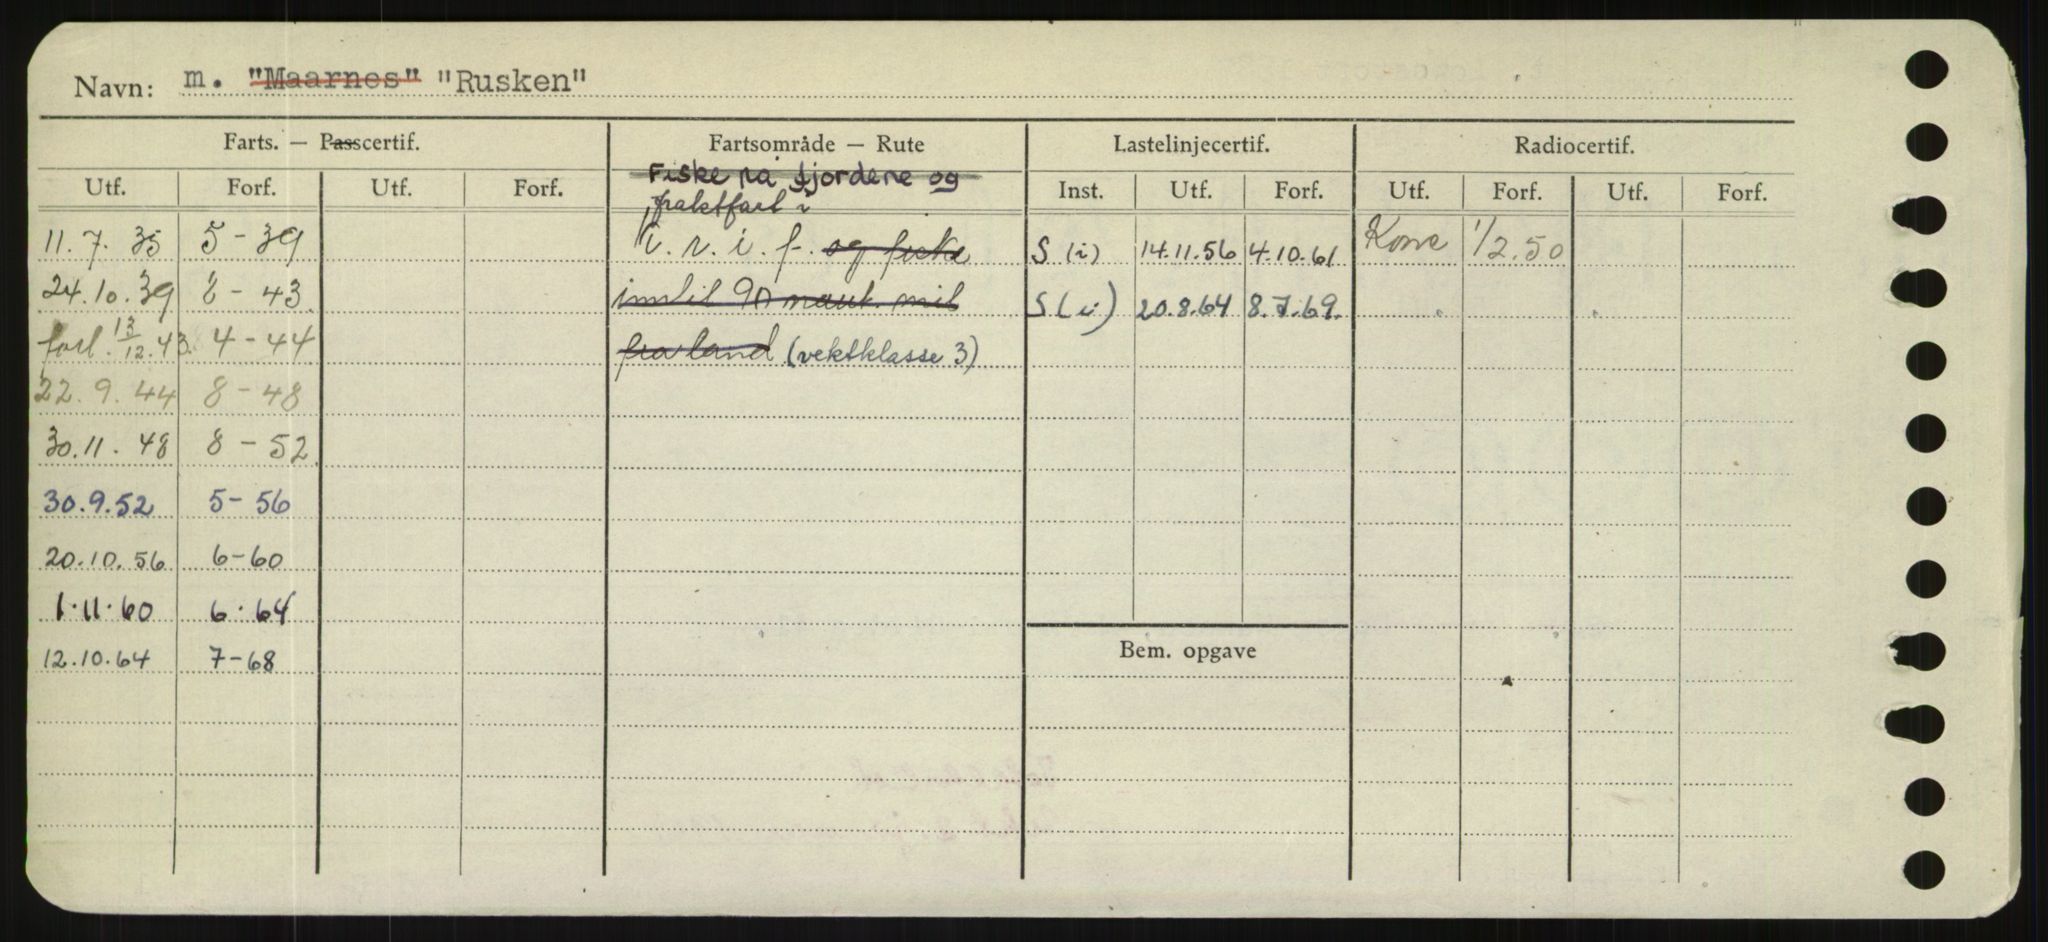 Navn: m. "Maarnes" "Rusken"
Farts. — Passcertif. Fartsområde — Rute Lastelinjecertif. Radiocertif.
Utf. Forf. Utf. Forf. Fiske på fjordene og Inst. Utf. Forf. Utf. Forf. Utf. Forf.
fraktfart i
11.7.35 5-39 i.r.i.f. og fiske S (i) 14.11.56 4.10.61 1/2.50
24.10.39 8-43 inntil 90 naut. mil S (i) 20.8.64 8.7.69.
forl. 13/12.43. 4-44 fra land (vektklasse 3)
22.9.44 8-48
30.11.48 8-52
30.9.52 5-56
20.10.56 6-60
1.11.60 6.64
12.10.64 7-68 Bem. opgave